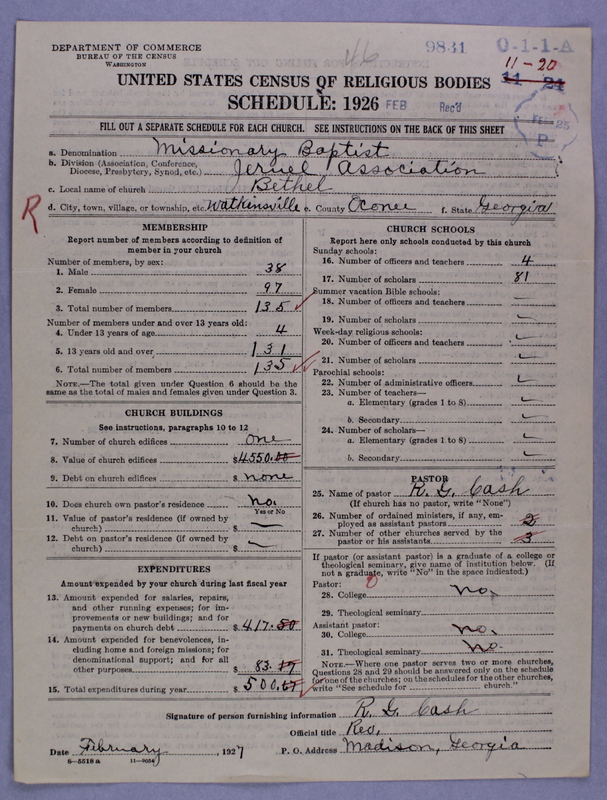 DEPARTMENT OF COMMERCE
BUREAU OF THE CENSUS
WASHINGTON
9831
0-1-1-A
11-20
11 21
UNITED STATES CENSUS OF RELIGIOUS BODIES
SCHEDULE: 1926
FEB Rec'd
FILL OUT A SEPARATE SCHEDULE FOR EACH CHURCH. SEE INSTRUCTIONS ON THE BACK OF THIS SHEET
a. Denomination Missionary Baptist
b. Division (Association, Conference, Diocese, Presbytery, Synod, etc.) Jeruel Association
c. Local name of church Bethel
R
d. City, town, village, or township, etc. Watkinsville e. County Oconee f. State Georgia
MEMBERSHIP
Report number of members according to definition of
member in your church
Number of members, by sex:
1. Male 38
2. Female 97
3. Total number of members 135
Number of members under and over 13 years old:
4. Under 13 years of age 4
5. 13 years old and over 131
6. Total number of members 135
NOTE.—The total given under Question 6 should be the
same as the total of males and females given under Question 3.
CHURCH BUILDINGS
See instructions, paragraphs 10 to 12
7. Number of church edifices one
8. Value of church edifices $4550.00
9. Debt on church edifices $ none
10. Does church own pastor's residence no.
Yes or No
11. Value of pastor's residence (if owned by
church) $
12. Debt on pastor's residence (if owned by
church) $
EXPENDITURES
Amount expended by your church during last fiscal year
13. Amount expended for salaries, repairs,
and other running expenses; for im-
provements or new buildings; and for
payments on church debt $ 417.50
14. Amount expended for benevolences, in-
cluding home and foreign missions; for
denominational support; and for all
other purposes $ 83.
15. Total expenditures during year $ 500.
CHURCH SCHOOLS
Report here only schools conducted by this church
Sunday schools:
16. Number of officers and teachers 4
17. Number of scholars 81
Summer vacation Bible schools:
18. Number of officers and teachers
19. Number of scholars
Week-day religious schools:
20. Number of officers and teachers
21. Number of scholars
Parochial schools:
22. Number of administrative officers
23. Number of teachers—
a. Elementary (grades 1 to 8)
b. Secondary
24. Number of scholars—
a. Elementary (grades 1 to 8)
b. Secondary
PASTOR
25. Name of pastor R. G. Cash
(If church has no pastor, write "None")
26. Number of ordained ministers, if any, em-
ployed as assistant pastors 2
27. Number of other churches served by the
pastor or his assistants 3
If pastor (or assistant pastor) is a graduate of a college or
theological seminary, give name of institution below. (If
not a graduate, write "No" in the space indicated.)
Pastor:
28. College no.
29. Theological seminary
Assistant pastor:
30. College no.
31. Theological seminary no.
NOTE.—Where one pastor serves two or more churches,
Questions 28 and 29 should be answered only on the schedule
for one of the churches; on the schedules for the other churches,
write "See schedule for church."
Signature of person furnishing information R. G. Cash
Official title Rev.
Date February, 1927 P. O. Address Madison, Georgia
8—5518 a 11—9054